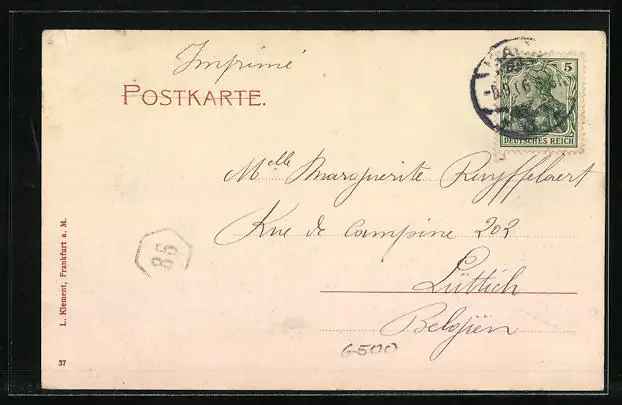 Imprimé
POSTKARTE.
5
DEUTSCHES REICH
Melle Marguerite
Rue de Campine 202
Lüttich
Belgien
86
6500
L. Klement, Frankfurt a. M.
37